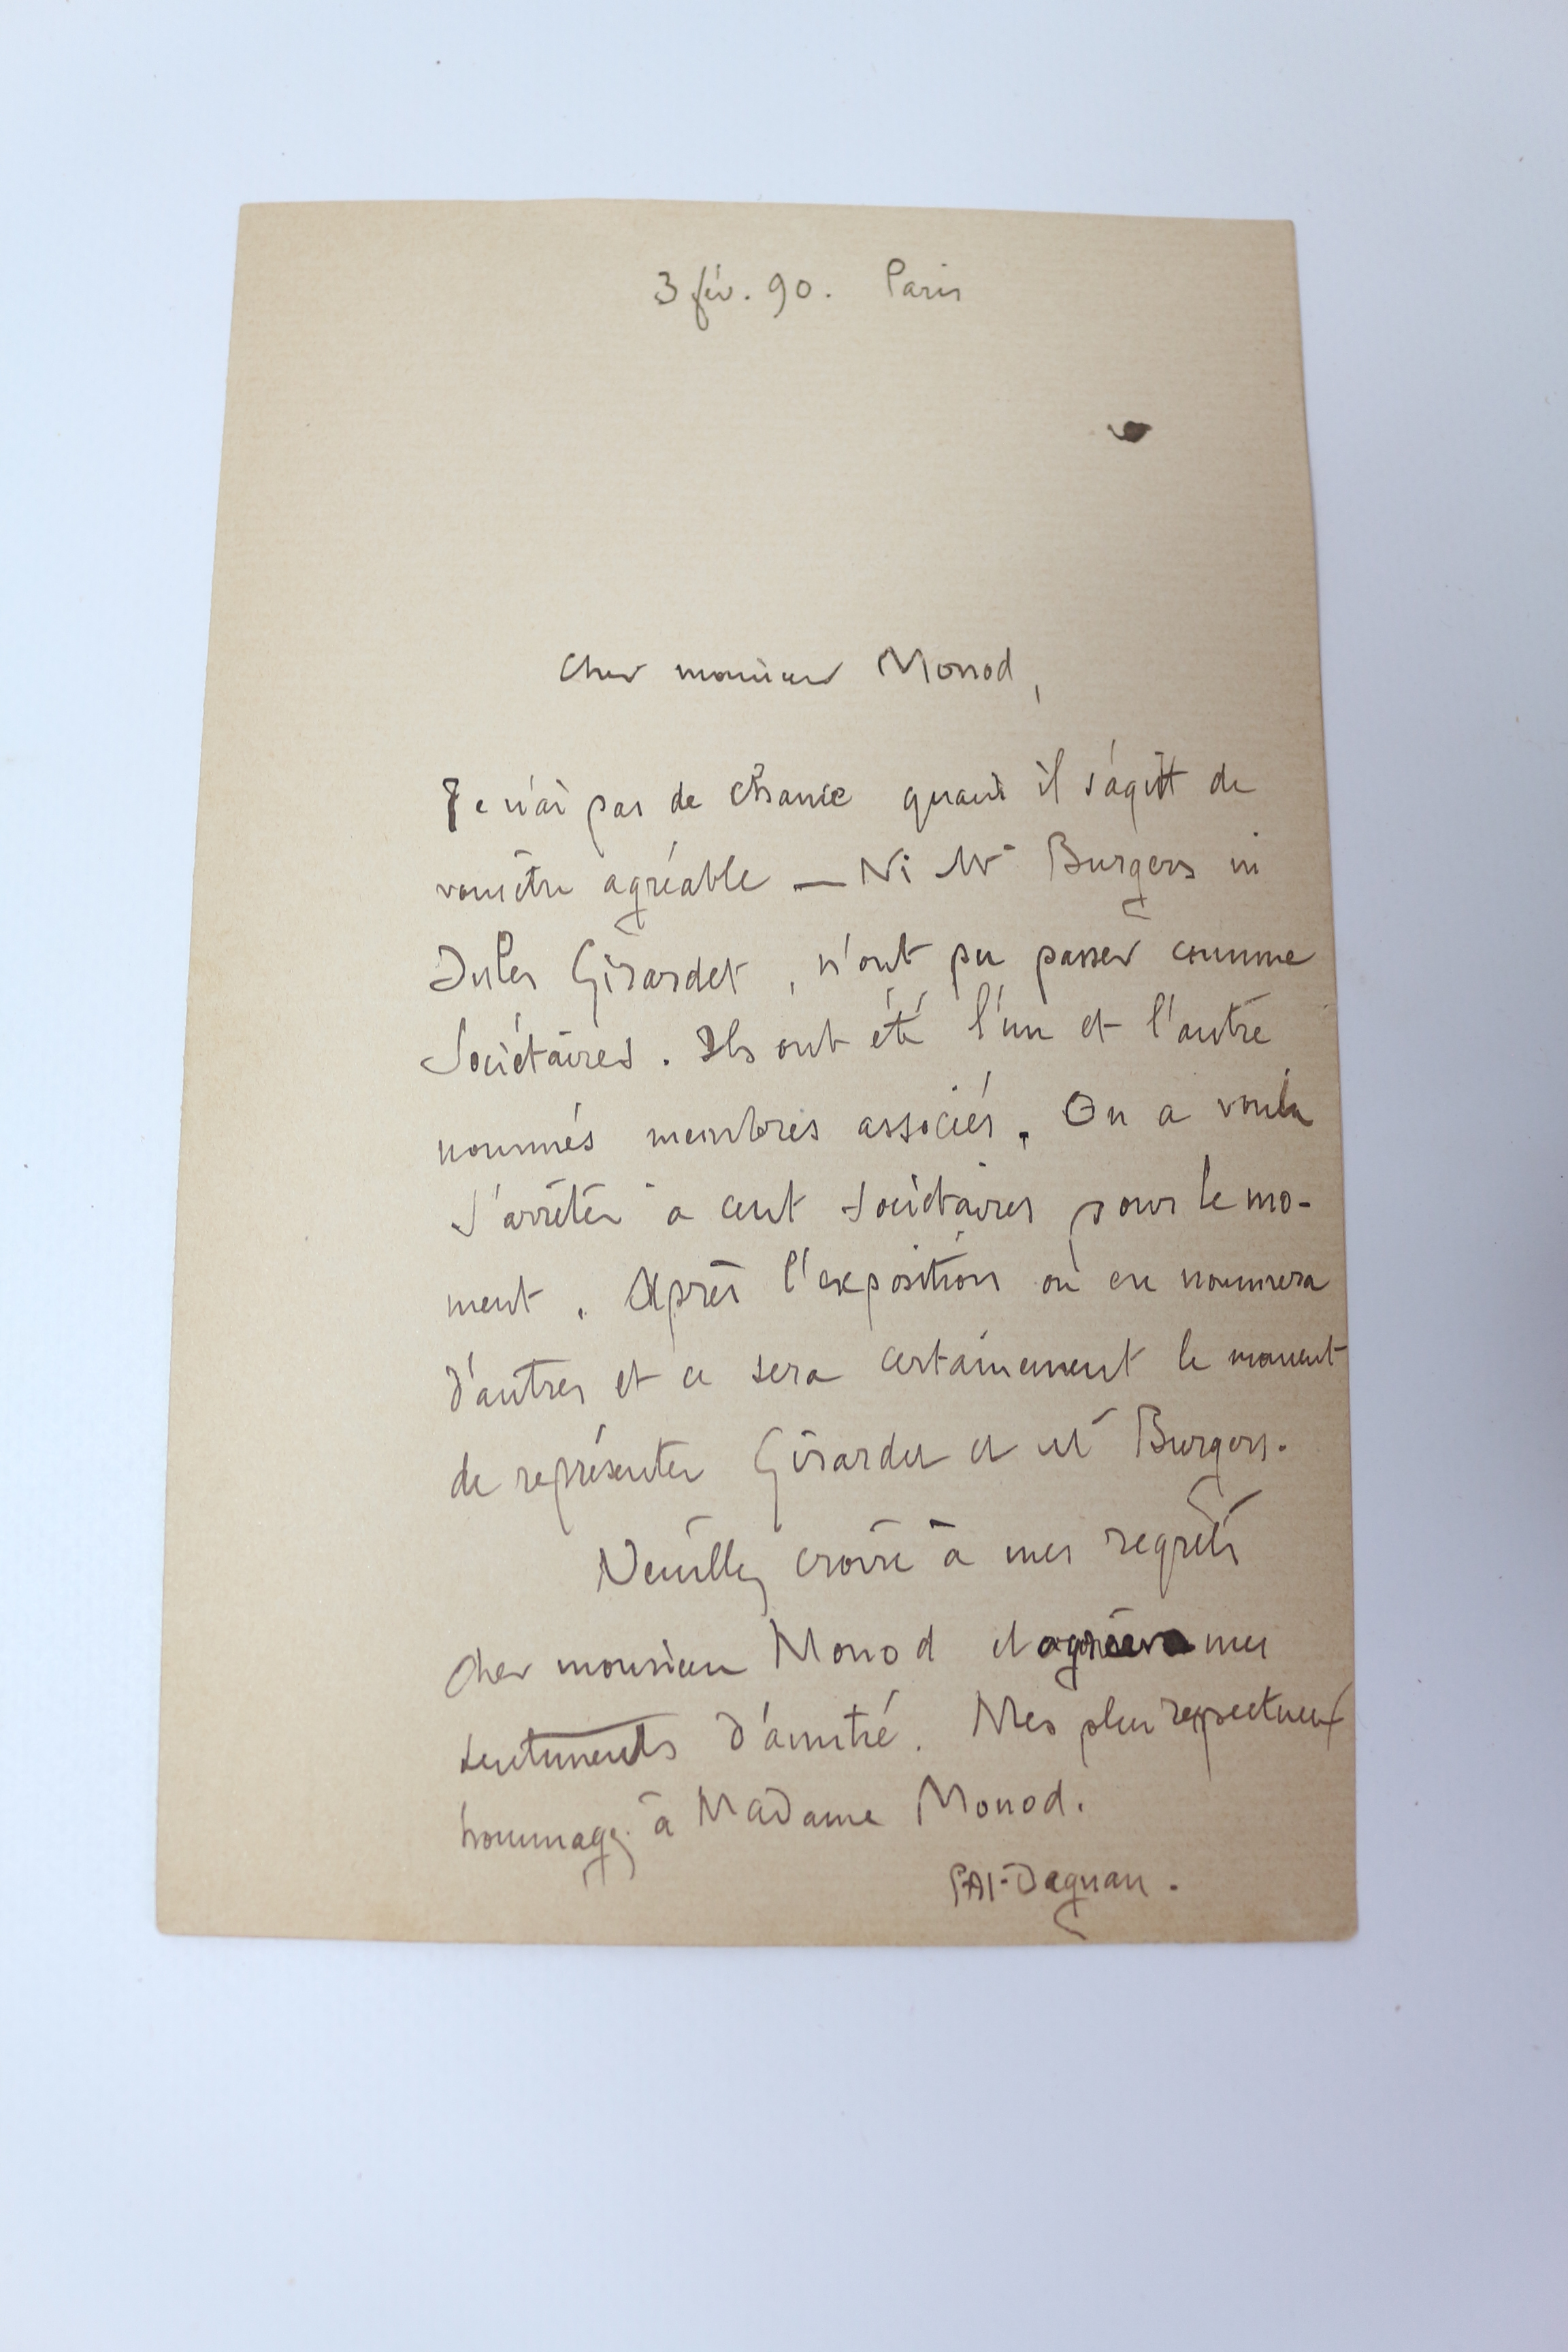 3 fév. 90. Paris
Cher monsieur Monod,
Je n'ai pas de chance quand il s'agit de
vous être agréable — Ni Mr Burgers ni
Jules Girardet, n'ont pu passer comme
Sociétaires. Ils ont été l'un et l'autre
nommés membres associés. On a voulu
s'arrêter à cent sociétaires pour le mo-
ment. Après l'exposition on en nommera
d'autres et ce sera certainement le moment
de représenter Girardet et Mr Burgers.
Veuillez croire à mes regrets
cher monsieur Monod et agréer mes
sentiments d'amitié. Mes plus respectueux
hommages à Madame Monod.
PAJ-Dagnan.